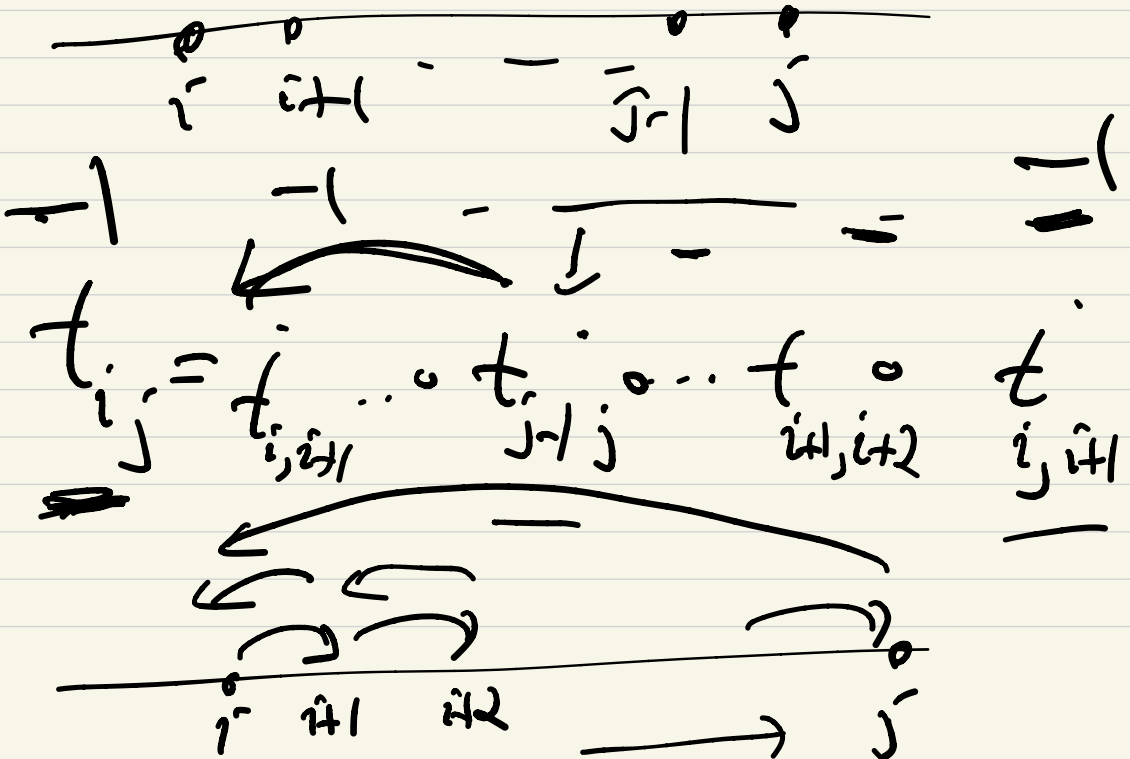 i i+1 - - - j-1 j
-1 -1 - - - - -1
t_{ij} = t_{i,i+1} ... o t_{j-1 j} o ... t_{i+1,i+2} o t_{i,i+1}
i i+1 i+2 j